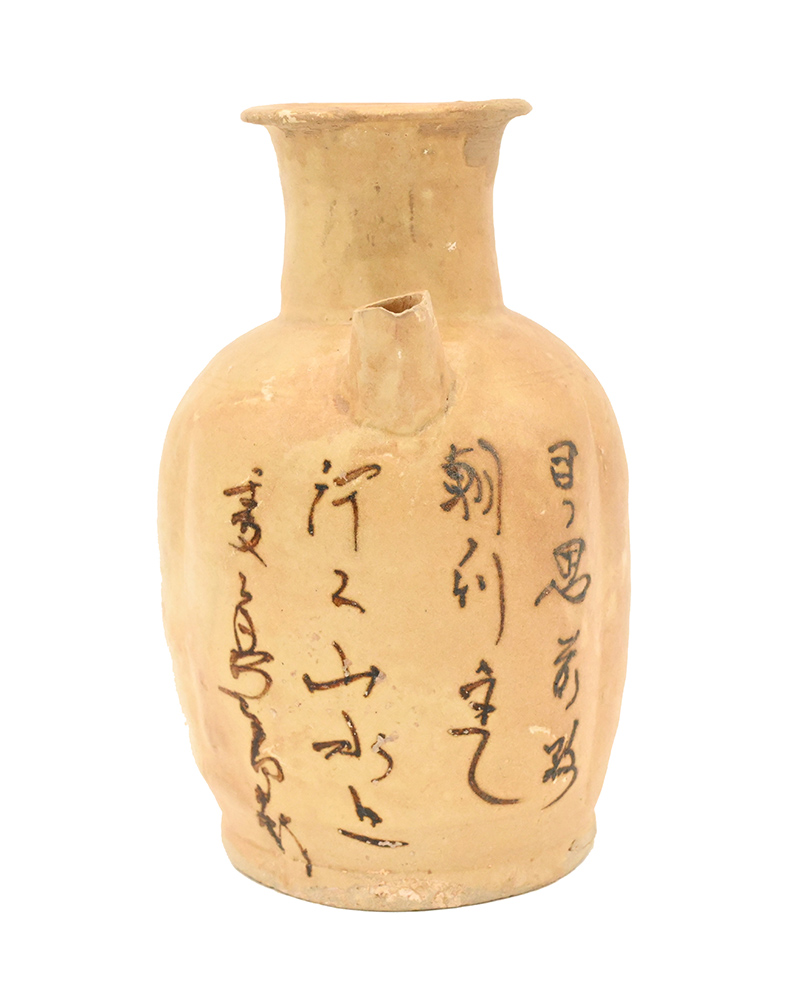 日々思前路
朝々別主人
行々山水上
處々鳥啼新